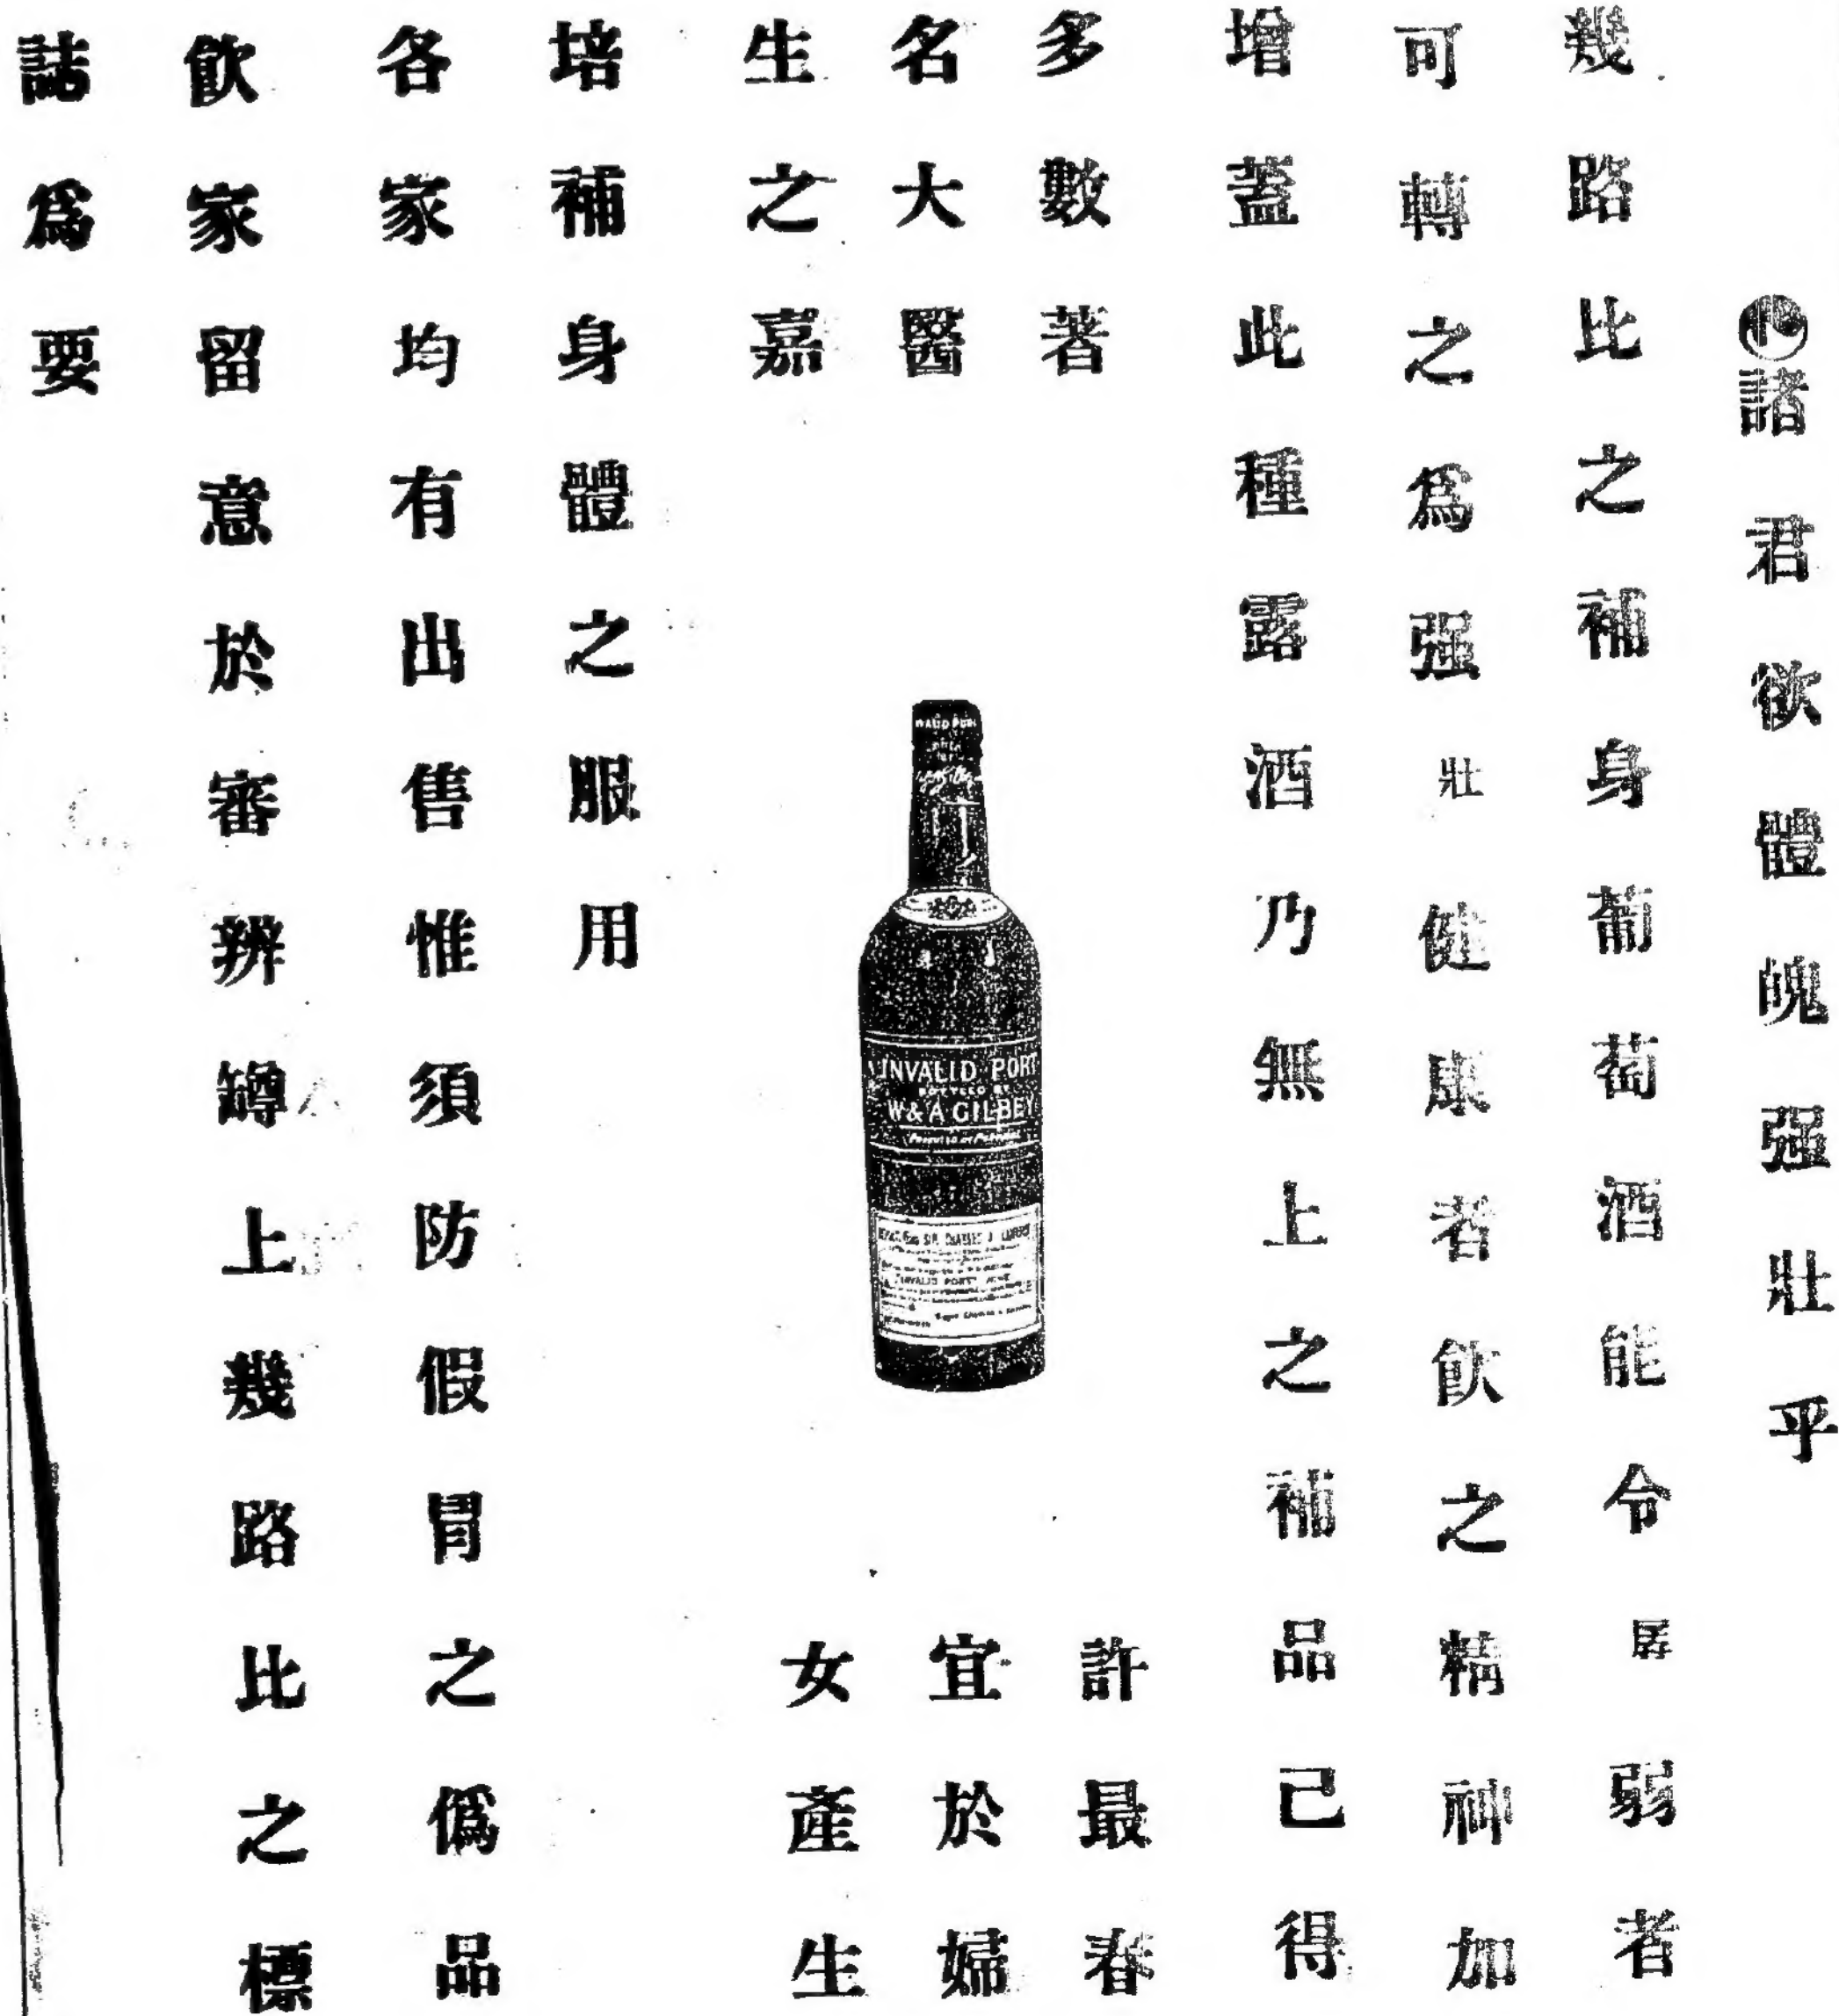 諸君欲體魄强壯乎
幾路比之補身葡萄酒能令孱弱者
可轉之爲强壯健康者飲之精神加
增蓋此種露酒乃無上之補品已得
多數著
許最春
名大醫
宜於婦
生之嘉
女產生
培補身體之服用
各家均有出售惟須防假冐之僞品
飲家留意於審辨罇上幾路比之標
誌爲要
INVALID PORT
W & A GILBEY
INVALID PORT